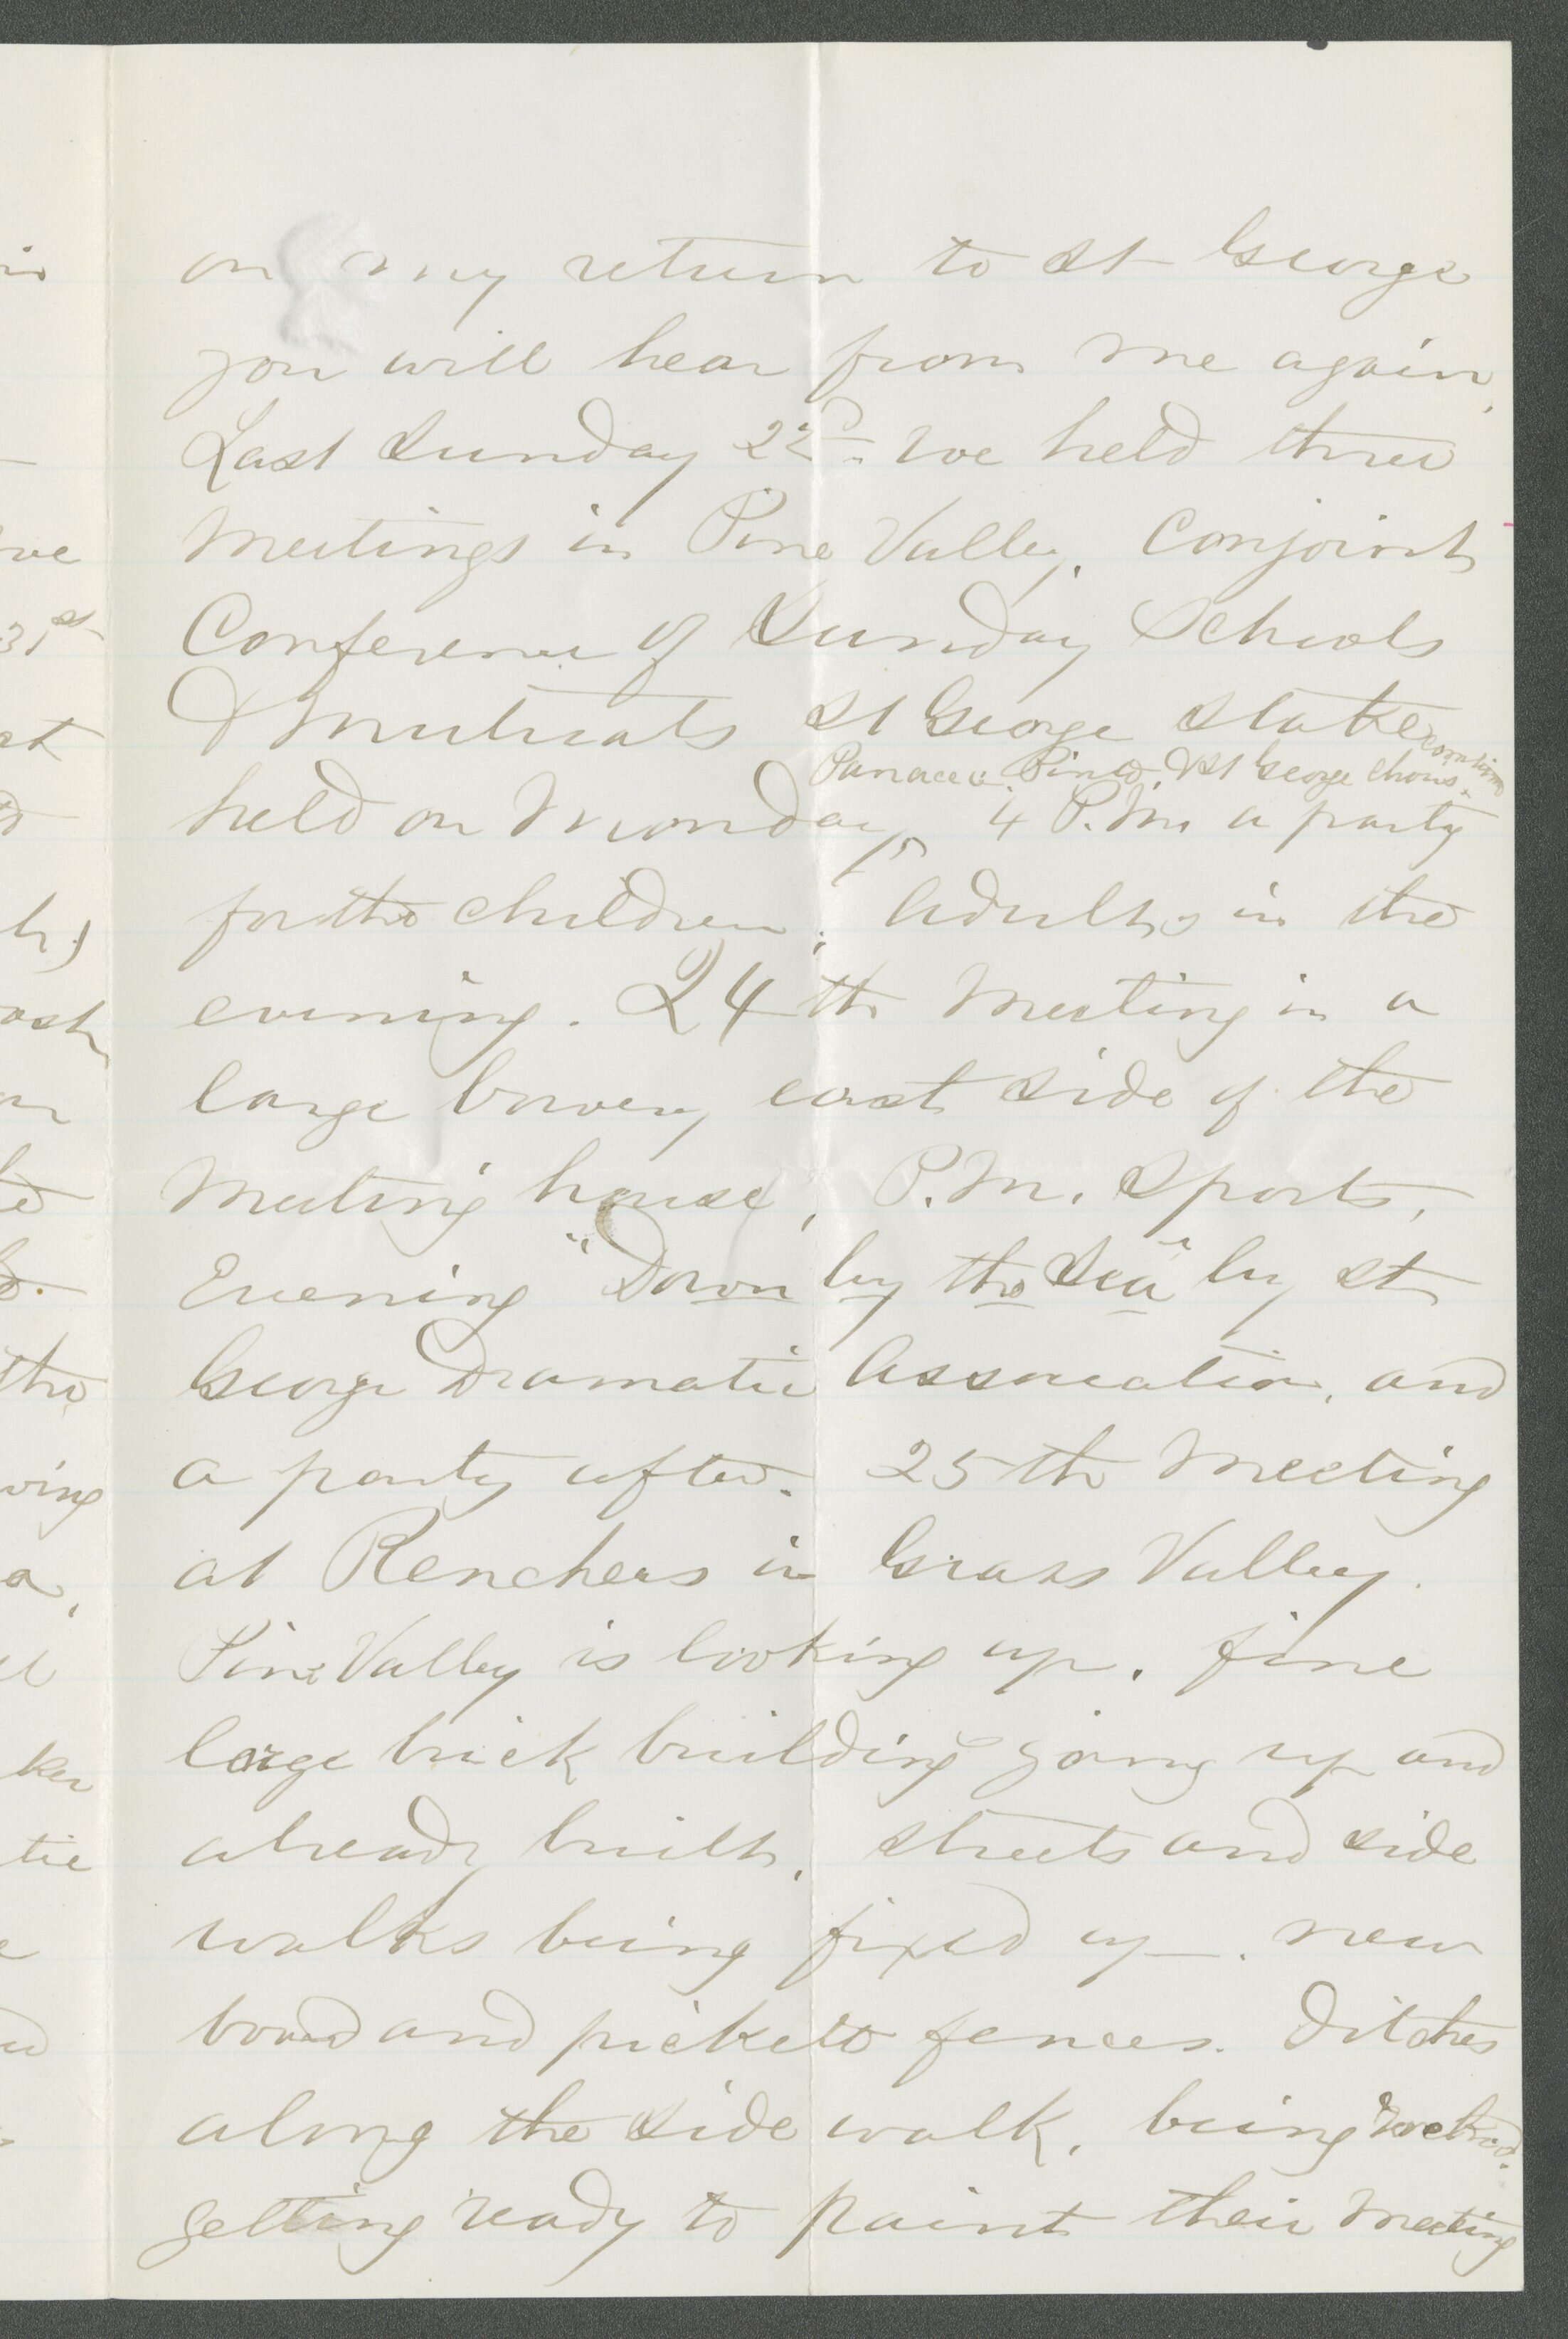 on my return to St George
you will hear from me again,
Last Sunday 22d. we held three
Meetings in Pine Valley, Conjoint
Conference of Sunday Schools
& Mutuals St George Stake
Panacca, Pinto, & St George Choirs.
held on Monday, 4 P.M. a party
for the children, Adults in the
evening. 24th Meeting in a
large bowery east side of the
Meeting house, P.M. Sports,
Evening "Down by the Sea" by St
George Dramatic Association, and
a party after. 25th Meeting
at Renchers in Grass Valley.
Pine Valley is looking up. fine
large brick building going up and
already built, streets and side
walks being fixed up. new
board and pickett fences. Ditches
along the side walk, being rocked.
getting ready to paint their Meeting